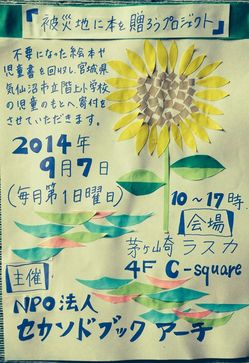 「被災地に本を贈ろうプロジェクト」
不要になった絵本や
児童書を回収し、宮城県
気仙沼市立階上小学校
の児童のもとへ、寄付を
させていただきます。
2014年
9月7日
(毎月第1日曜日)
10～17時
会場
茅ヶ崎 ラスカ
4F C-square
主催
NPO法人
セカンドブック アーチ